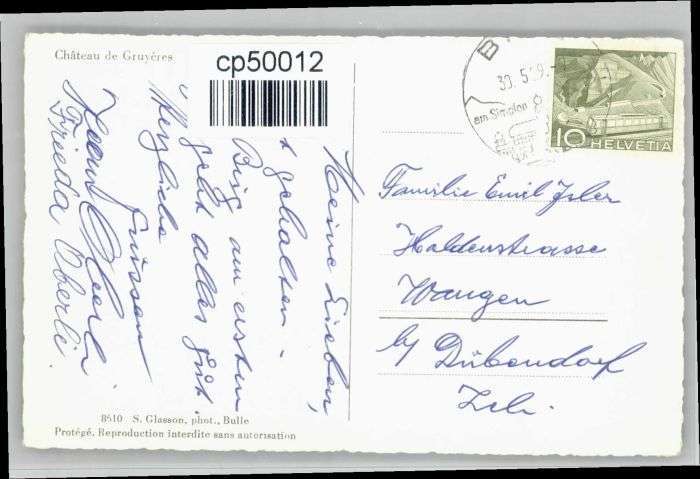 Château de Gruyères
cp50012
30.5.59.
am Simplon
10 HELVETIA
Meine Lieben,
gehalten -
Brig am ersten
geht alles gut.
Herzliche
Grüssen
Oberli
Frieda Oberli
Familie Emil Isler
Haldenstrasse
Wangen
b/ Dübendorf
Zch.
8510 S. Glasson, phot., Bulle
Protégé. Reproduction interdite sans autorisation